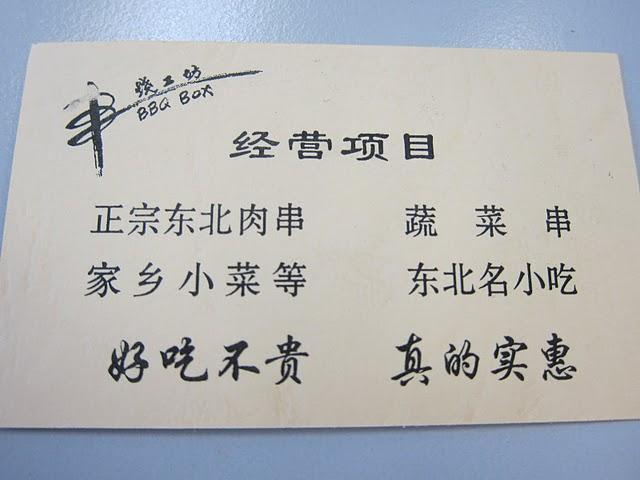 串烧工坊
BBQ BOX
经营项目
正宗东北肉串 蔬菜串
家乡小菜等 东北名小吃
好吃不贵 真的实惠